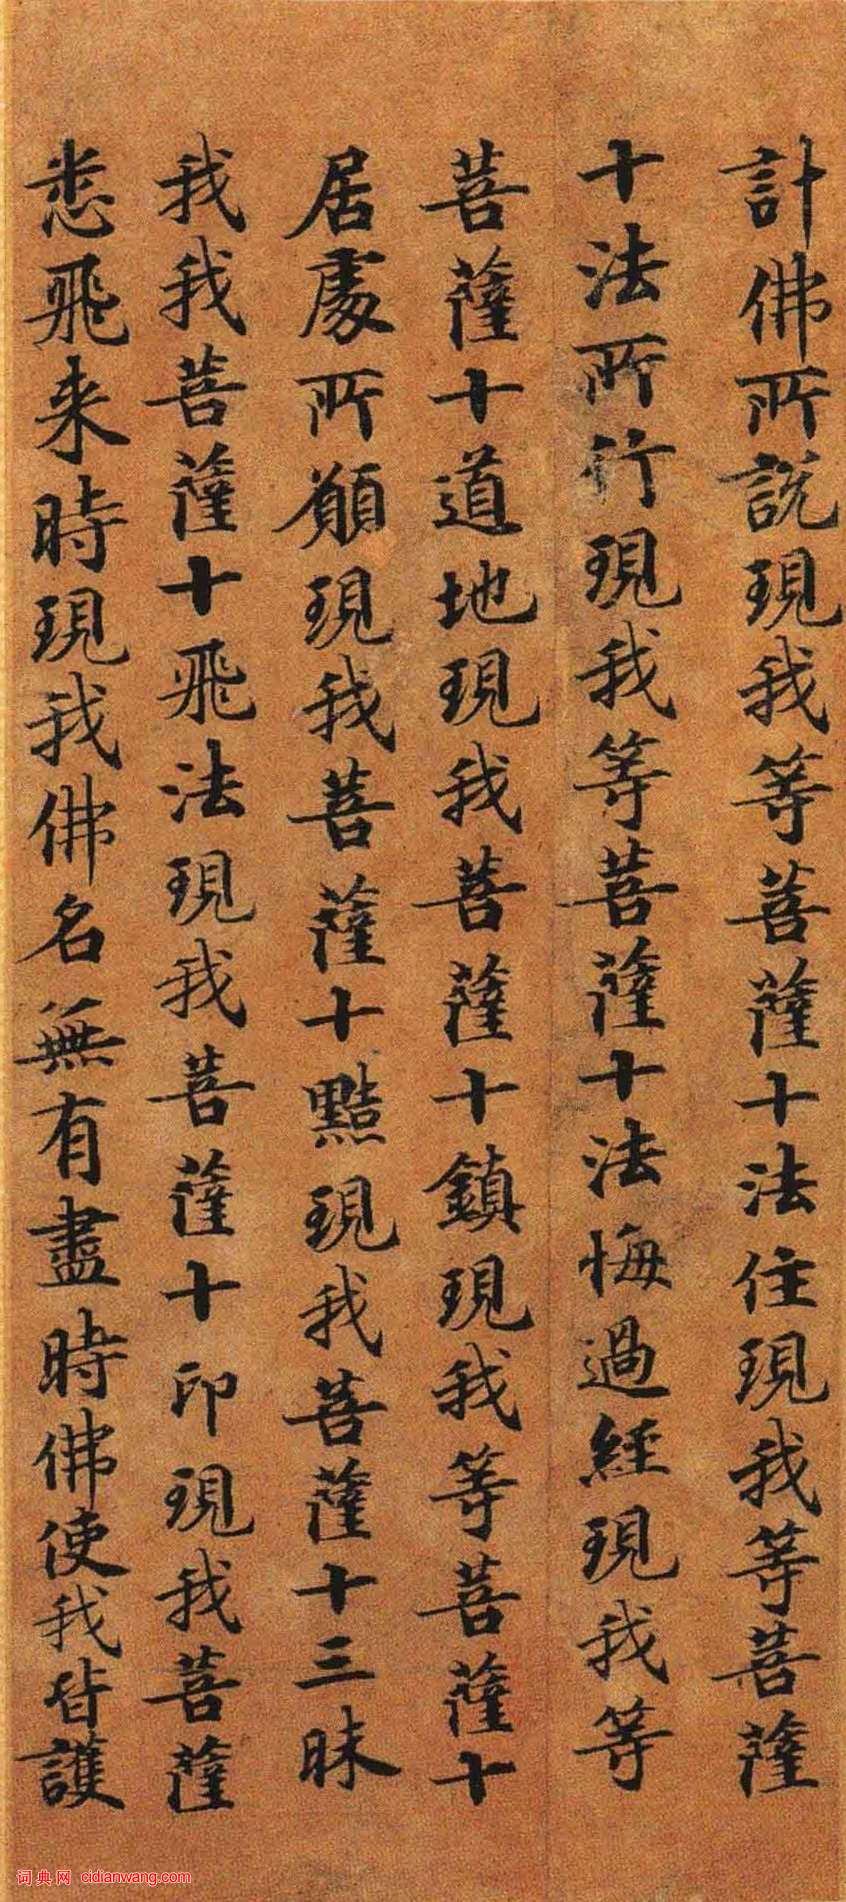 計佛所說現我等菩薩十法住現我等菩薩
十法所行現我等菩薩十法悔過經現我等
菩薩十道地現我菩薩十鎮現我等菩薩十
居處所願現我菩薩十黠現我菩薩十三昧
我我菩薩十飛法現我菩薩十印現我菩薩
悉飛来時現我佛名無有盡時佛使我皆護
词典网 cidianwang.com